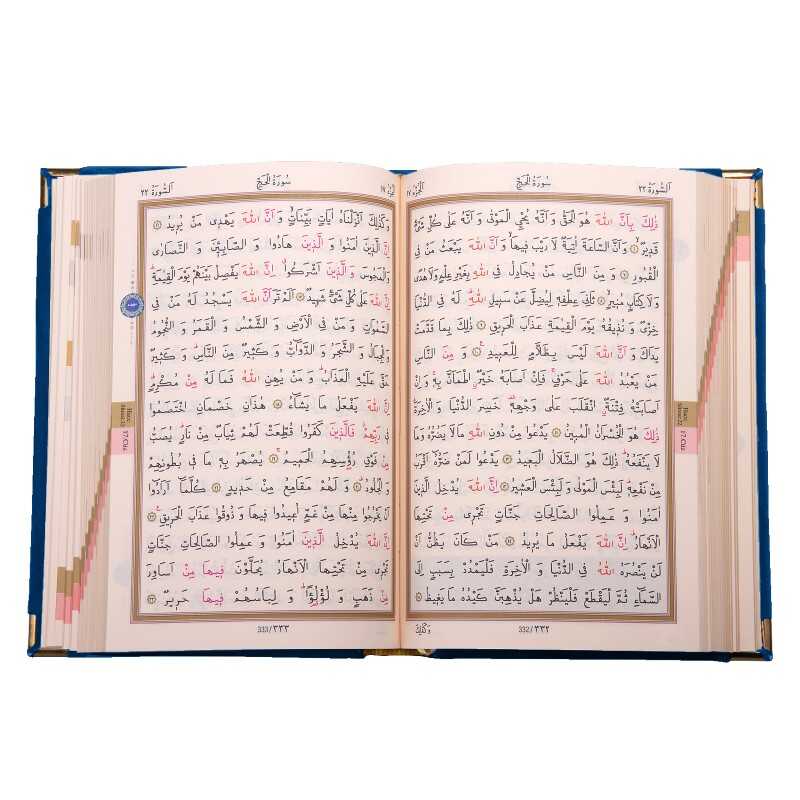 اَلسُّورَةُ ٢٢ سُورَةُ الْحَجِّ اَلْجُزْءُ ١٧
ذٰلِكَ بِاَنَّ اللّٰهَ هُوَ الْحَقُّ وَ اَنَّهُ يُحْيِي الْمَوْتٰى وَ اَنَّهُ عَلٰى كُلِّ شَيْءٍ
قَدِيرٌ ﴿٦﴾ وَ اَنَّ السَّاعَةَ اٰتِيَةٌ لَا رَيْبَ فِيهَا وَ اَنَّ اللّٰهَ يَبْعَثُ مَنْ فِي
الْقُبُورِ ﴿٧﴾ وَ مِنَ النَّاسِ مَنْ يُجَادِلُ فِي اللّٰهِ بِغَيْرِ عِلْمٍ وَلَا هُدًى
وَلَا كِتَابٍ مُنِيرٍ ﴿٨﴾ ثَانِيَ عِطْفِهِ لِيُضِلَّ عَنْ سَبِيلِ اللّٰهِ لَهُ فِي الدُّنْيَا
خِزْيٌ وَ نُذِيقُهُ يَوْمَ الْقِيٰمَةِ عَذَابَ الْحَرِيقِ ﴿٩﴾ ذٰلِكَ بِمَا قَدَّمَتْ
يَدَاكَ وَ اَنَّ اللّٰهَ لَيْسَ بِظَلَّامٍ لِلْعَبِيدِ ﴿١٠﴾ وَ مِنَ النَّاسِ
مَنْ يَعْبُدُ اللّٰهَ عَلٰى حَرْفٍ فَاِنْ اَصَابَهُ خَيْرٌ اطْمَاَنَّ بِهِ وَ اِنْ
اَصَابَتْهُ فِتْنَةٌ انْقَلَبَ عَلٰى وَجْهِهِ خَسِرَ الدُّنْيَا وَ الْاٰخِرَةَ
ذٰلِكَ هُوَ الْخُسْرَانُ الْمُبِينُ ﴿١١﴾ يَدْعُوا مِنْ دُونِ اللّٰهِ مَا لَا يَضُرُّهُ وَمَا
لَا يَنْفَعُهُ ذٰلِكَ هُوَ الضَّلَالُ الْبَعِيدُ ﴿١٢﴾ يَدْعُوا لَمَنْ ضَرُّهُ اَقْرَبُ
مِنْ نَفْعِهِ لَبِئْسَ الْمَوْلٰى وَ لَبِئْسَ الْعَشِيرُ ﴿١٣﴾ اِنَّ اللّٰهَ يُدْخِلُ الَّذِينَ
اٰمَنُوا وَ عَمِلُوا الصَّالِحَاتِ جَنَّاتٍ تَجْرِي مِنْ تَحْتِهَا
الْاَنْهَارُ اِنَّ اللّٰهَ يَفْعَلُ مَا يُرِيدُ ﴿١٤﴾ مَنْ كَانَ يَظُنُّ اَنْ
لَنْ يَنْصُرَهُ اللّٰهُ فِي الدُّنْيَا وَ الْاٰخِرَةِ فَلْيَمْدُدْ بِسَبَبٍ اِلَى
السَّمَاءِ ثُمَّ لْيَقْطَعْ فَلْيَنْظُرْ هَلْ يُذْهِبَنَّ كَيْدُهُ مَا يَغِيظُ ﴿١٥﴾
332/٣٣٢
وَكَذٰلِكَ
سُورَةُ الْحَجِّ اَلسُّورَةُ ٢٢
وَكَذٰلِكَ اَنْزَلْنَاهُ اٰيَاتٍ بَيِّنَاتٍ وَ اَنَّ اللّٰهَ يَهْدِي مَنْ يُرِيدُ ﴿١٦﴾
اِنَّ الَّذِينَ اٰمَنُوا وَ الَّذِينَ هَادُوا وَ الصَّابِئِينَ وَ النَّصَارٰى
وَ الْمَجُوسَ وَ الَّذِينَ اَشْرَكُوا اِنَّ اللّٰهَ يَفْصِلُ بَيْنَهُمْ يَوْمَ الْقِيٰمَةِ
اِنَّ اللّٰهَ عَلٰى كُلِّ شَيْءٍ شَهِيدٌ ﴿١٧﴾ اَلَمْ تَرَ اَنَّ اللّٰهَ يَسْجُدُ لَهُ مَنْ فِي
السَّمٰوَاتِ وَ مَنْ فِي الْاَرْضِ وَ الشَّمْسُ وَ الْقَمَرُ وَ النُّجُومُ
وَ الْجِبَالُ وَ الشَّجَرُ وَ الدَّوَابُّ وَ كَثِيرٌ مِنَ النَّاسِ وَ كَثِيرٌ
حَقَّ عَلَيْهِ الْعَذَابُ وَ مَنْ يُهِنِ اللّٰهُ فَمَا لَهُ مِنْ مُكْرِمٍ
اِنَّ اللّٰهَ يَفْعَلُ مَا يَشَاءُ ﴿١٨﴾ هٰذَانِ خَصْمَانِ اخْتَصَمُوا
فِي رَبِّهِمْ فَالَّذِينَ كَفَرُوا قُطِّعَتْ لَهُمْ ثِيَابٌ مِنْ نَارٍ يُصَبُّ
مِنْ فَوْقِ رُؤُسِهِمُ الْحَمِيمُ ﴿١٩﴾ يُصْهَرُ بِهِ مَا فِي بُطُونِهِمْ
وَ الْجُلُودُ ﴿٢٠﴾ وَ لَهُمْ مَقَامِعُ مِنْ حَدِيدٍ ﴿٢١﴾ كُلَّمَا اَرَادُوا
اَنْ يَخْرُجُوا مِنْهَا مِنْ غَمٍّ اُعِيدُوا فِيهَا وَ ذُوقُوا عَذَابَ الْحَرِيقِ ﴿٢٢﴾
اِنَّ اللّٰهَ يُدْخِلُ الَّذِينَ اٰمَنُوا وَ عَمِلُوا الصَّالِحَاتِ جَنَّاتٍ
تَجْرِي مِنْ تَحْتِهَا الْاَنْهَارُ يُحَلَّوْنَ فِيهَا مِنْ اَسَاوِرَ
مِنْ ذَهَبٍ وَ لُؤْلُؤًا وَ لِبَاسُهُمْ فِيهَا حَرِيرٌ ﴿٢٣﴾
333/٣٣٣